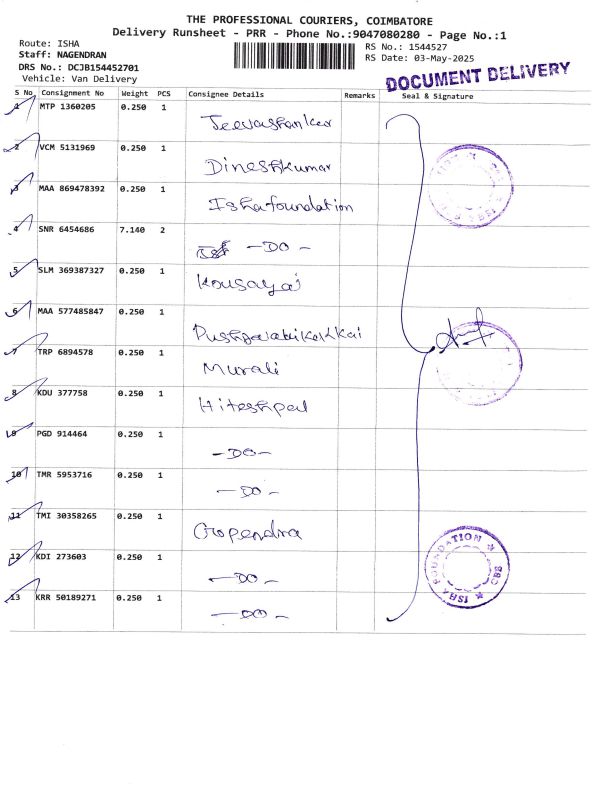 THE PROFESSIONAL COURIERS, COIMBATORE
Delivery Runsheet - PRR - Phone No.:9047080280 - Page No.:1
Route: ISHA
RS No.: 1544527
Staff: NAGENDRAN
RS Date: 03-May-2025
DRS No.: DCJB154452701
Vehicle: Van Delivery
DOCUMENT DELIVERY
S No Consignment No Weight PCS Consignee Details Remarks Seal & Signature
1 MTP 1360205 0.250 1 Jeevashanker
2 VCM 5131969 0.250 1 Dineshkumar
3 MAA 869478392 0.250 1 Ishafoundation
4 SNR 6454686 7.140 2 -DO-
5 SLM 369387327 0.250 1 Kousayai
6 MAA 577485847 0.250 1
7 TRP 6894578 0.250 1 Murali
8 KDU 377758 0.250 1 Hiteshpal
9 PGD 914464 0.250 1 -DO-
10 TMR 5953716 0.250 1 -DO-
11 TMI 30358265 0.250 1 Gopendra
12 KDI 273603 0.250 1 -DO-
13 KRR 50189271 0.250 1 -DO-
ISHA FOUNDATION ★ CBE ★